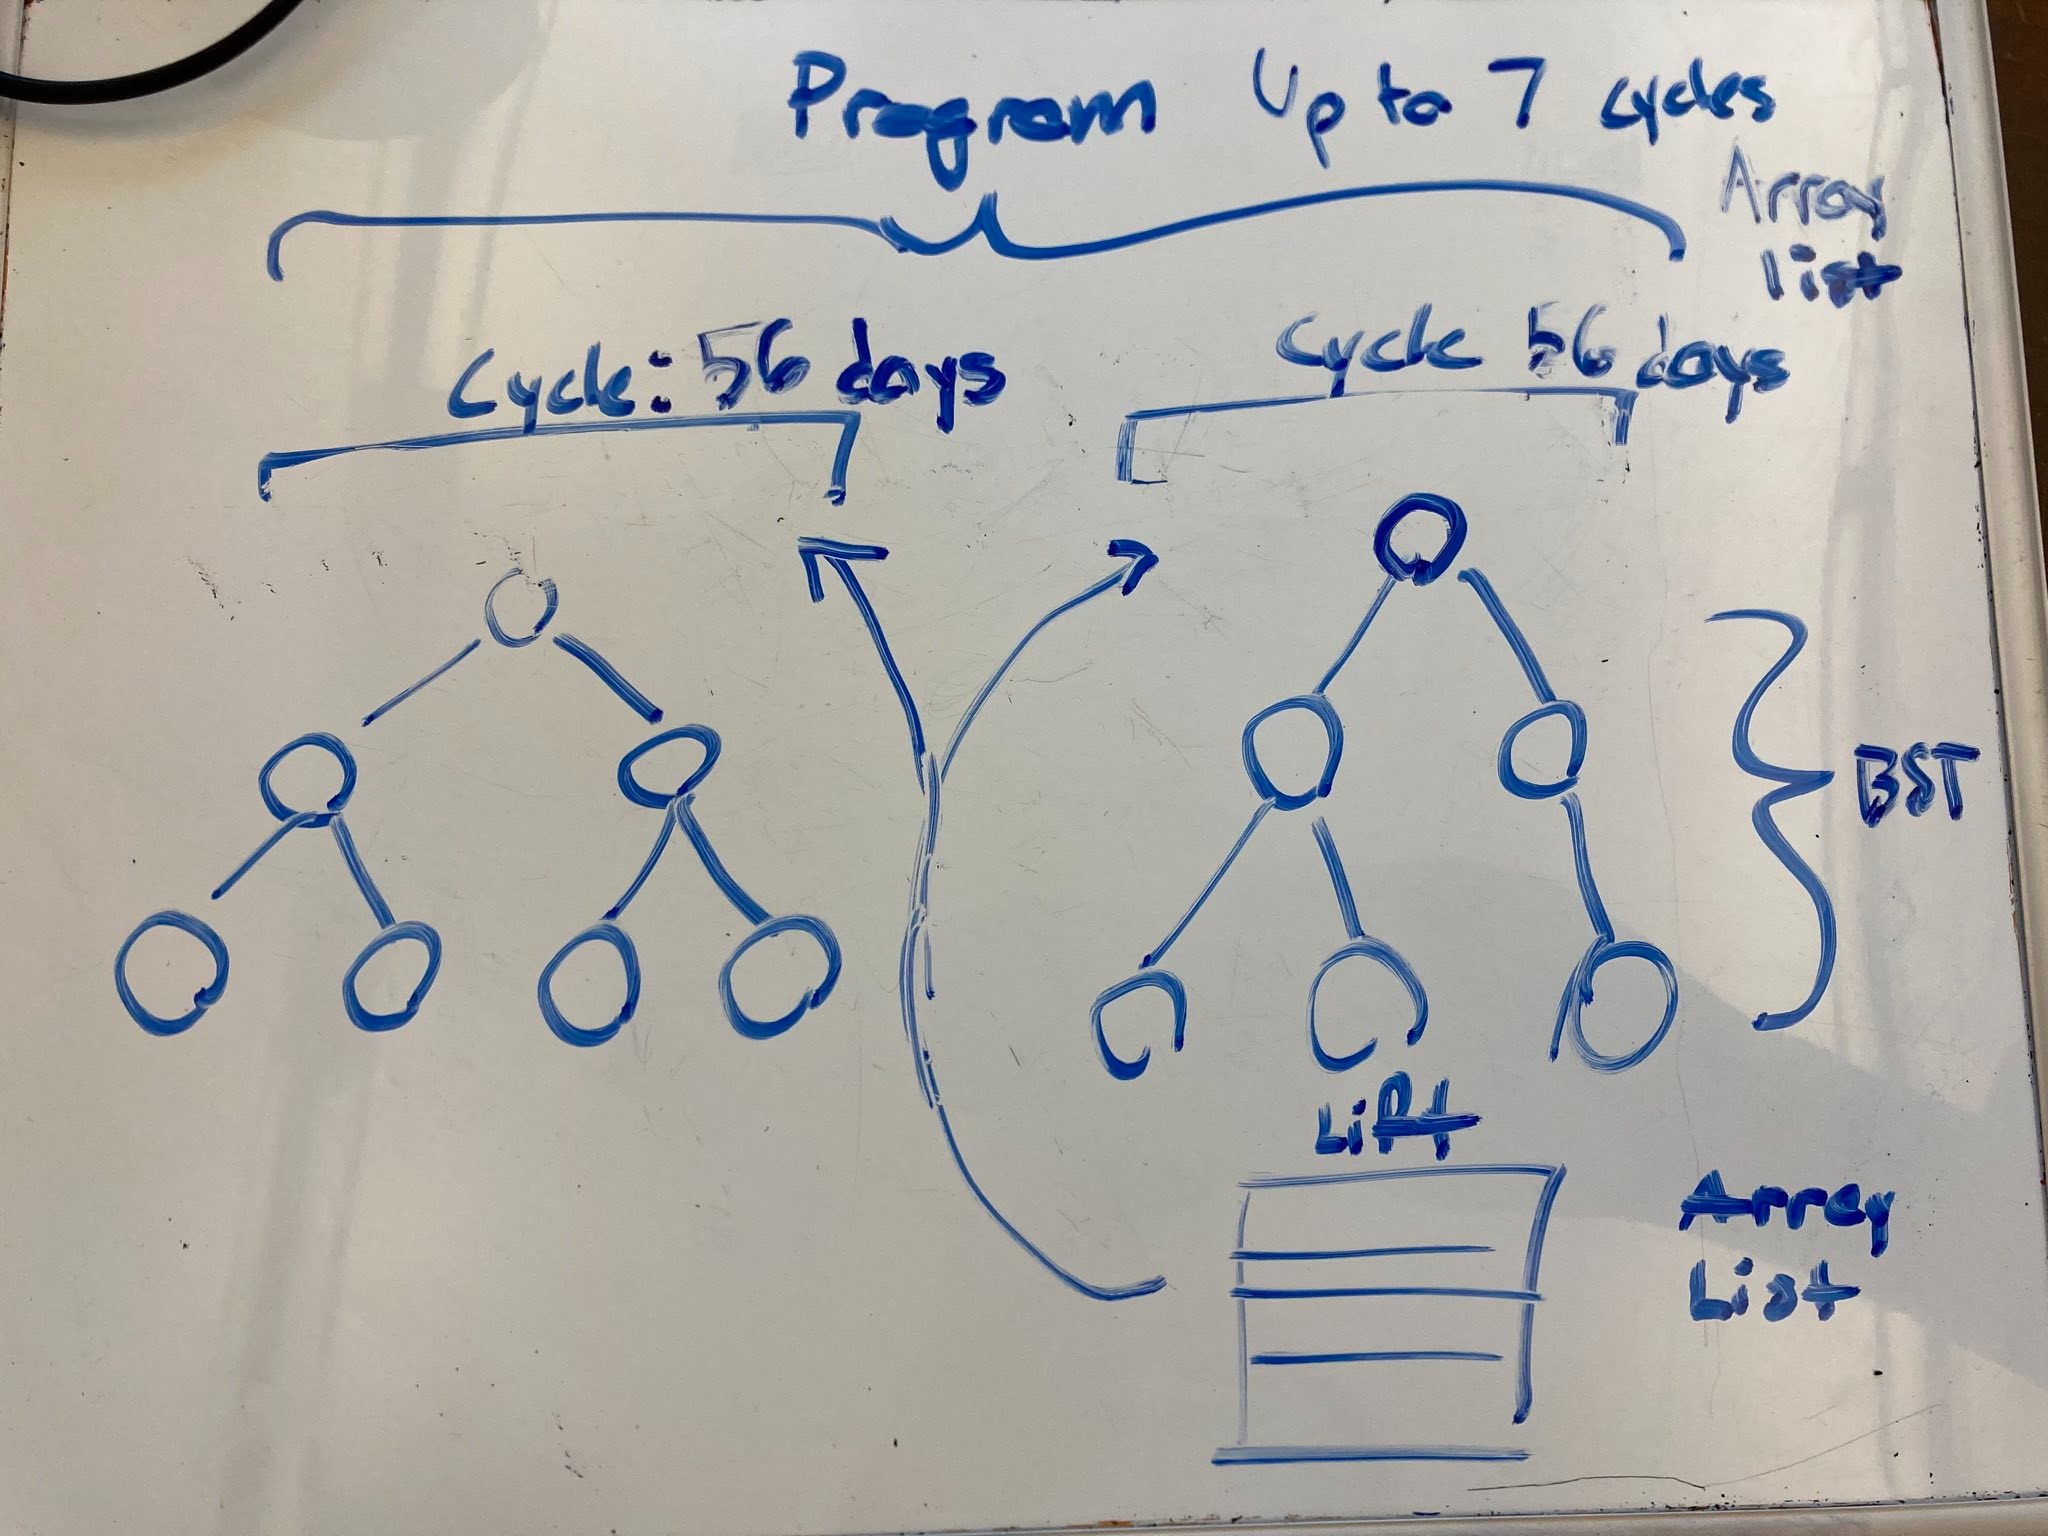 Program Up to 7 cycles
Array
list
Cycle: 56 days
Cycle 56 days
BST
Lift
Array
List